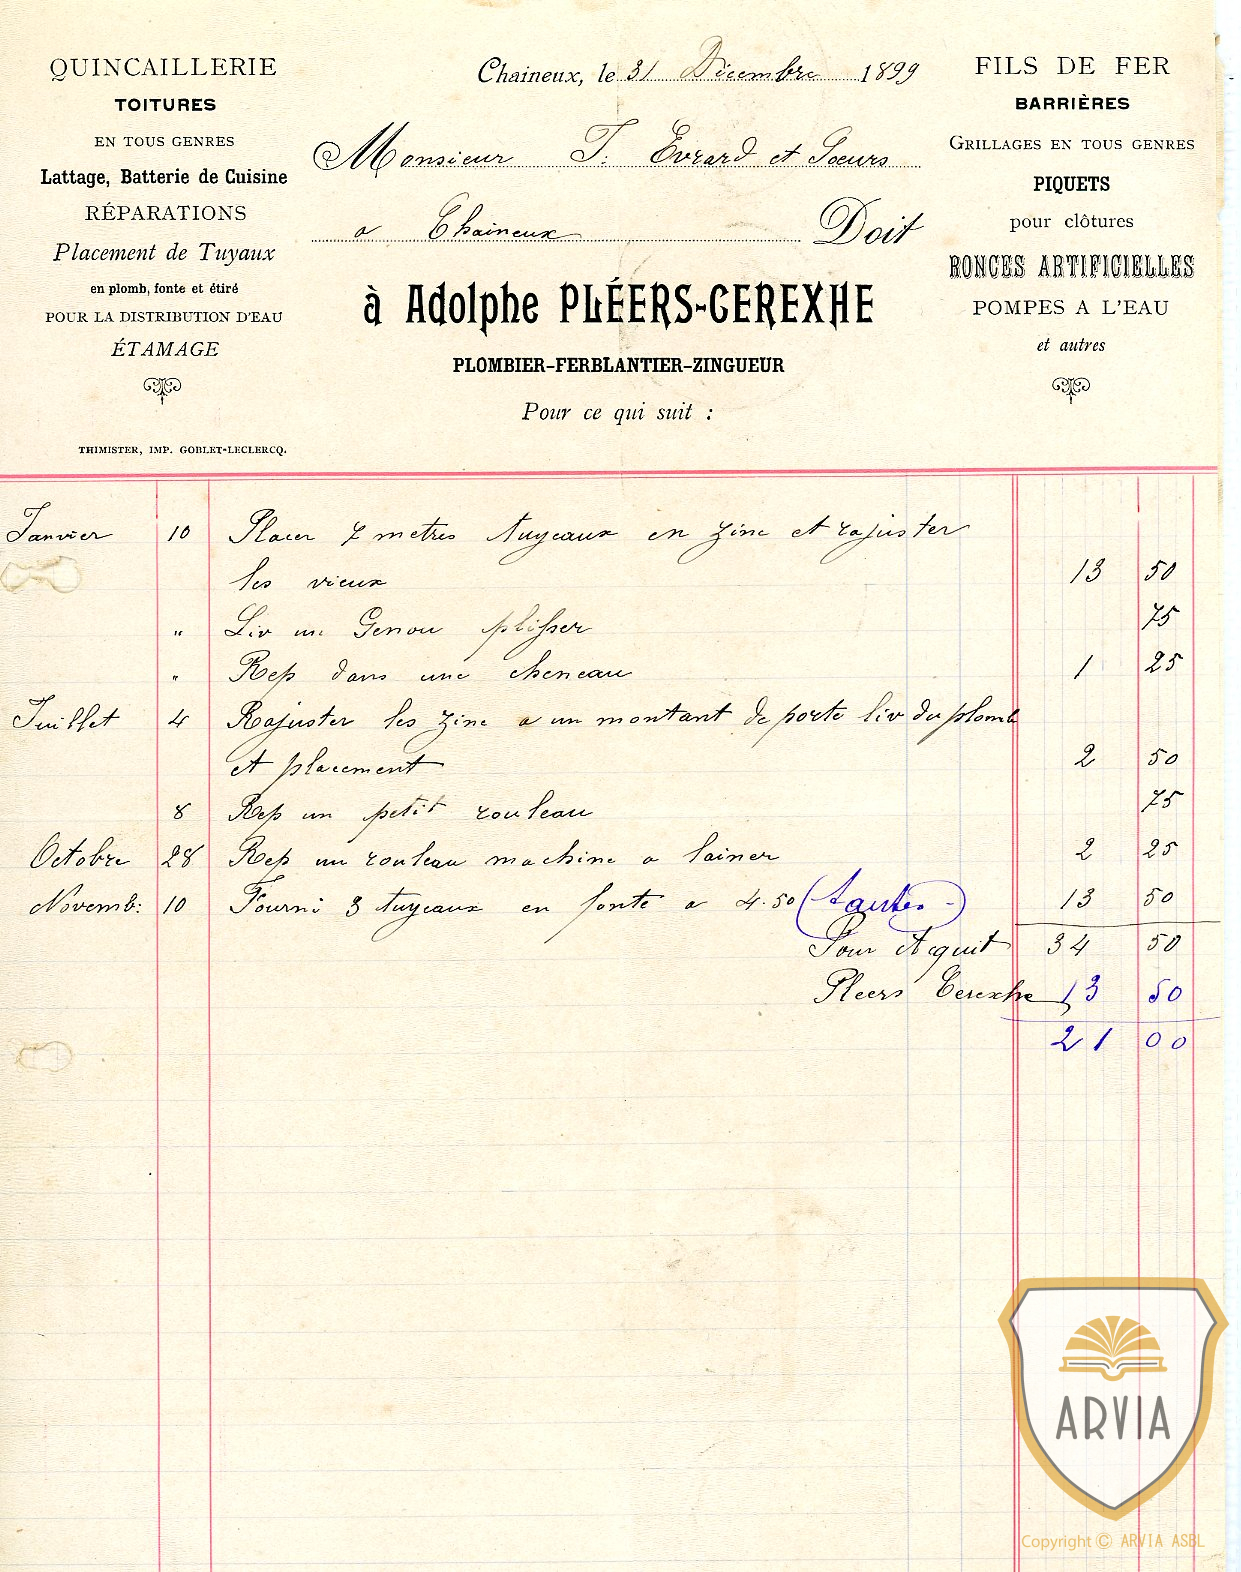 QUINCAILLERIE
TOITURES
EN TOUS GENRES
Lattage, Batterie de Cuisine
RÉPARATIONS
Placement de Tuyaux
en plomb, fonte et étiré
POUR LA DISTRIBUTION D'EAU
ÉTAMAGE
THIMISTER, IMP. GOBLET-LECLERCQ.
Chaineux, le 31 Décembre 1899
Monsieur T. Evrard et Sœurs
a Chaineux Doit
à Adolphe PLÉERS-CEREXHE
PLOMBIER-FERBLANTIER-ZINGUEUR
Pour ce qui suit :
FILS DE FER
BARRIÈRES
GRILLAGES EN TOUS GENRES
PIQUETS
pour clôtures
RONCES ARTIFICIELLES
POMPES A L'EAU
et autres
Janvier 10 Placer 7 metres tuyeaux en zinc et rajuster
les vieux 13 50
" Liv un Genou plisser 75
" Rep dans une cheneau 1 25
Juillet 4 Rajuster les zinc a un montant de porte liv du plomb
et placement 2 50
8 Rep un petit rouleau 75
Octobre 28 Rep un rouleau machine a lainer 2 25
Novemb: 10 Fourni 3 tuyeaux en fonte a 4.50 13 50
Pour Acquit 34 50
Pleers Cerexhe 13 50
21 00
ARVIA
Copyright © ARVIA ASBL